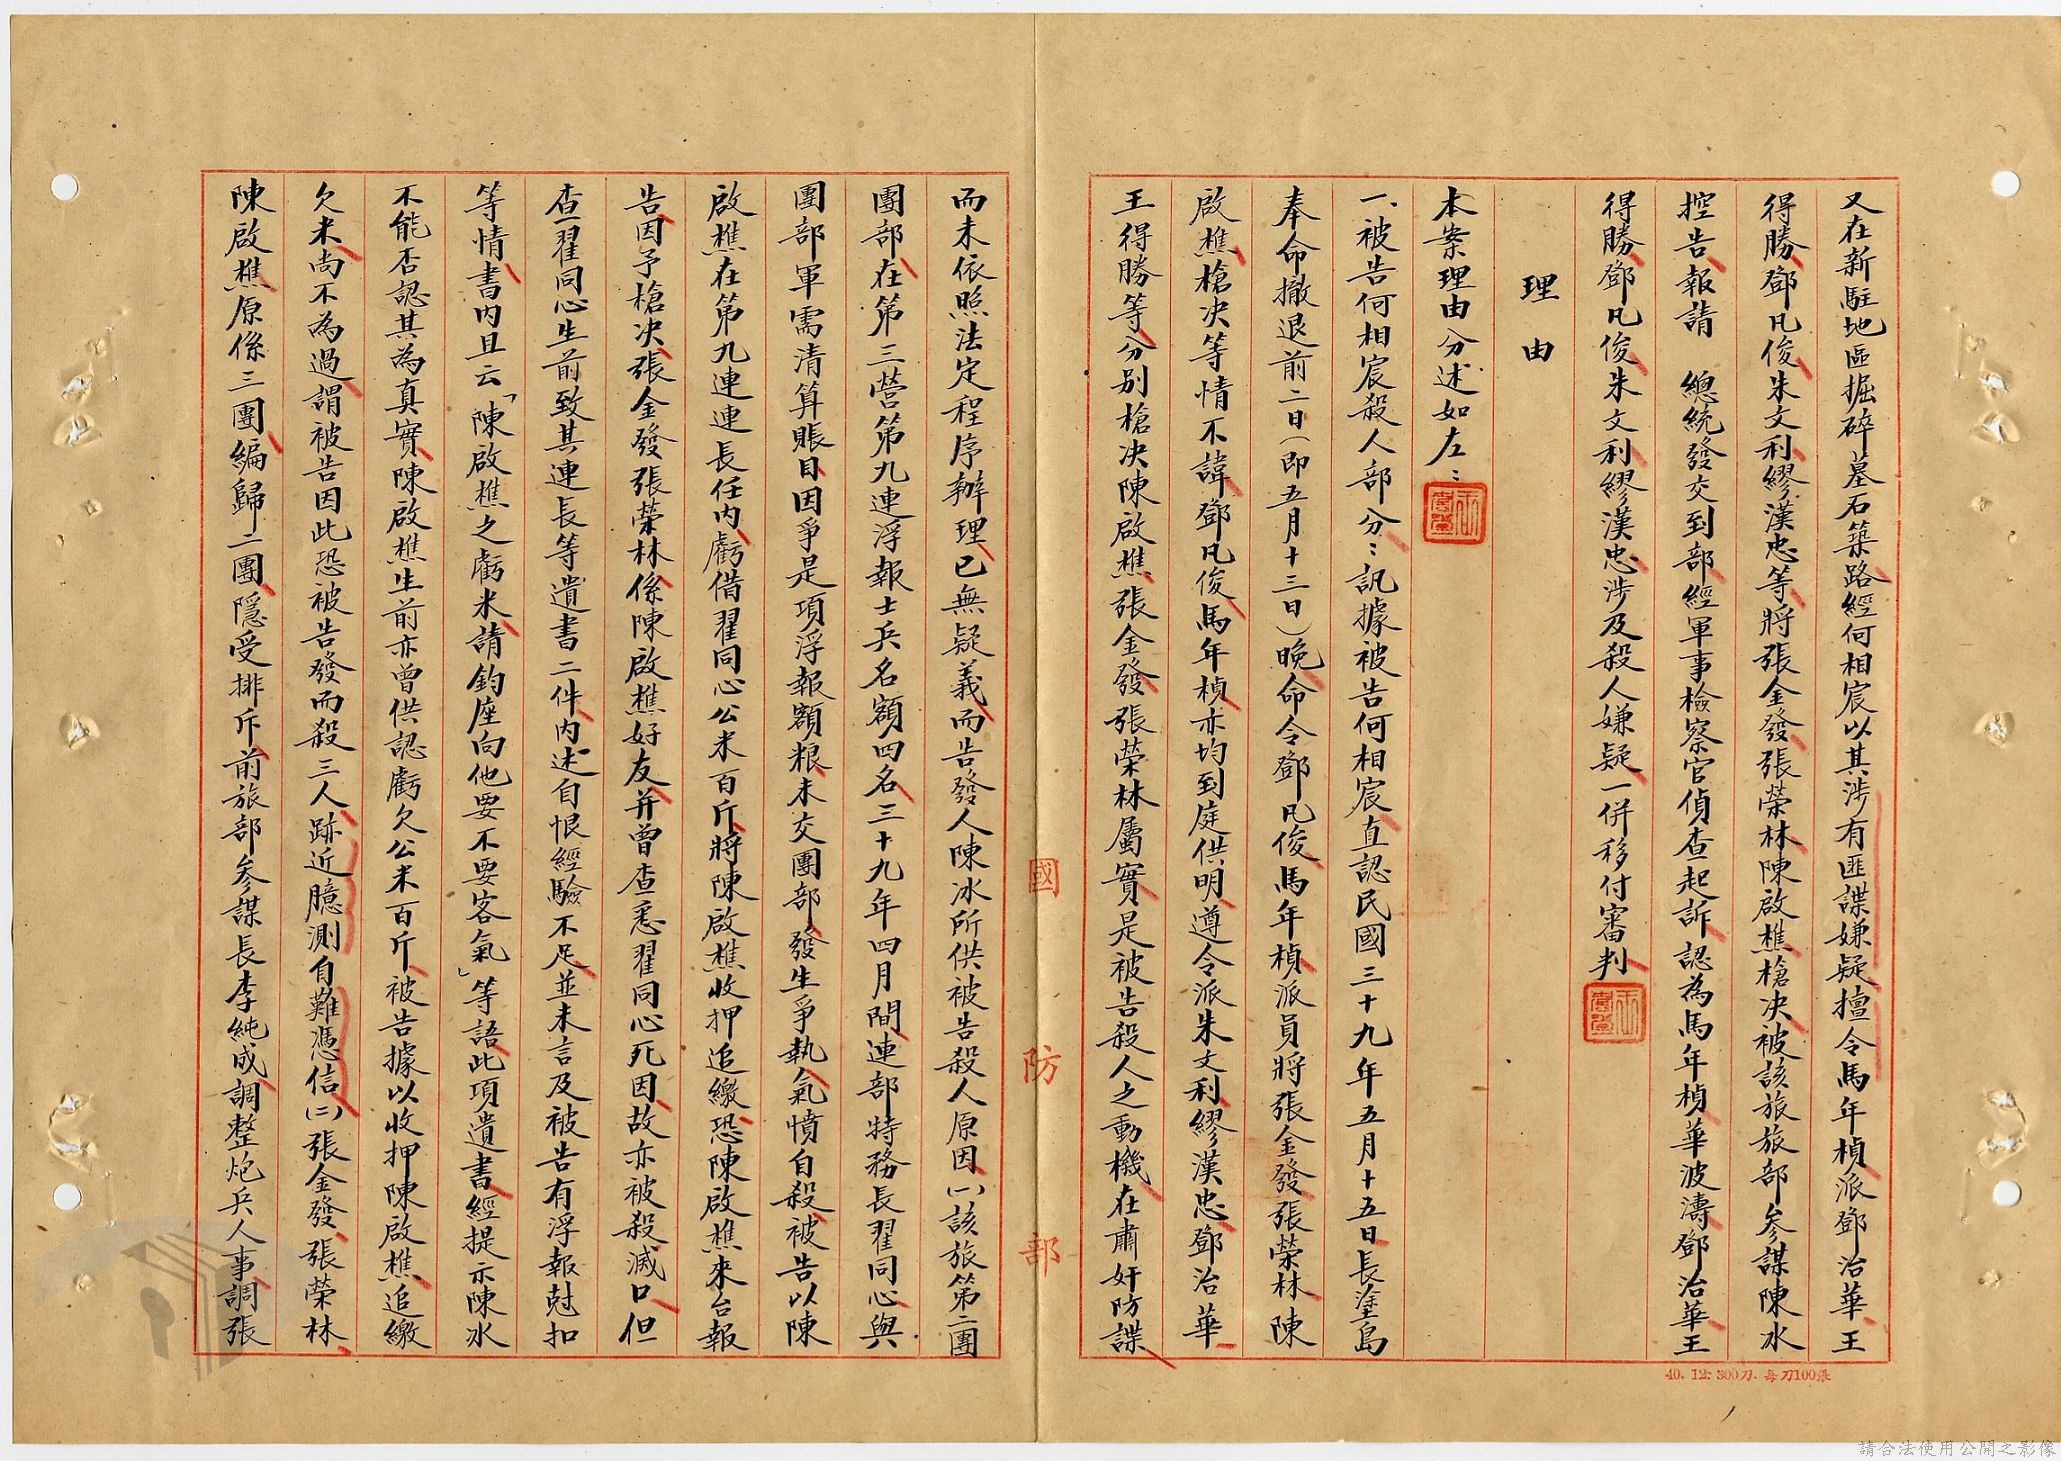 又在新駐地區掘碎墓石築路經何相宸以其涉有匪諜嫌疑擅令馬年楨派鄧治華王
得勝鄧凡俊朱文利繆漢忠等將張金發張榮林陳啟樵槍決被該旅旅部參謀陳冰
控告報請 總統發交到部經軍事檢察官偵查起訴認為馬年楨華波濤鄧治華王
得勝鄧凡俊朱文利繆漢忠涉及殺人嫌疑一併移付審判
理由
本案理由分述如左：
一、被告何相宸殺人部分：訊據被告何相宸直認民國三十九年五月十五日長塗島
奉命撤退前二日（即五月十三日）晚命令鄧凡俊馬年楨派員將張金發張榮林陳
啟樵槍決等情不諱鄧凡俊馬年楨亦均到庭供明遵令派朱文利繆漢忠鄧治華
王得勝等分別槍決陳啟樵張金發張榮林屬實是被告殺人之動機在肅奸防諜
而未依照法定程序辦理已無疑義而告發人陳冰所供被告殺人原因(一)該旅第二團
團部在第三營第九連浮報士兵名額四名三十九年四月間連部特務長翟同心與
團部軍需清算賬目因爭是項浮報額粮未交團部發生爭執氣憤自殺被告以陳
啟樵在第九連連長任內虧借翟同心公米百斤將陳啟樵收押追繳恐陳啟樵來台報
告因予槍決張金發張榮林係陳啟樵好友并曾查悉翟同心死因故亦被殺滅口但
查翟同心生前致其連長等遺書二件內述自恨經驗不足並未言及被告有浮報尅扣
等情書內且云「陳啟樵之虧米請鈞座向他要不要客氣」等語此項遺書經提示陳冰
不能否認其為真實陳啟樵生前亦曾供認虧欠公米百斤被告據以收押陳啟樵追繳
欠米尚不為過謂被告因此恐被告發而殺三人跡近臆測自難憑信(二)張金發張榮林
陳啟樵原係三團編歸二團隱受排斥前旅部參謀長李純成調整炮兵人事調張
國防部
40. 12. 300刀. 每刀100張
請合法使用公開之影像